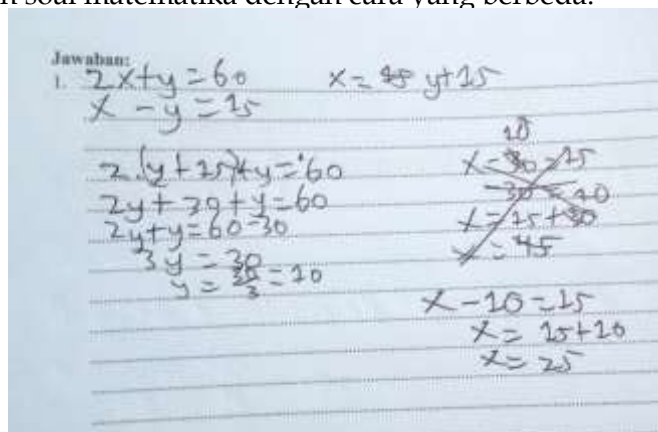 soal matematika dengan cara yang berbeda.
Jawaban:
1. 2x+y=60
x - y = 15
2(y+15)+y=60
2y+30+y=60
2y+y=60-30
3y=30
y=30/3=10
x= y+15
10
x=15+30
x=45
x-10=15
x=15+10
x=25